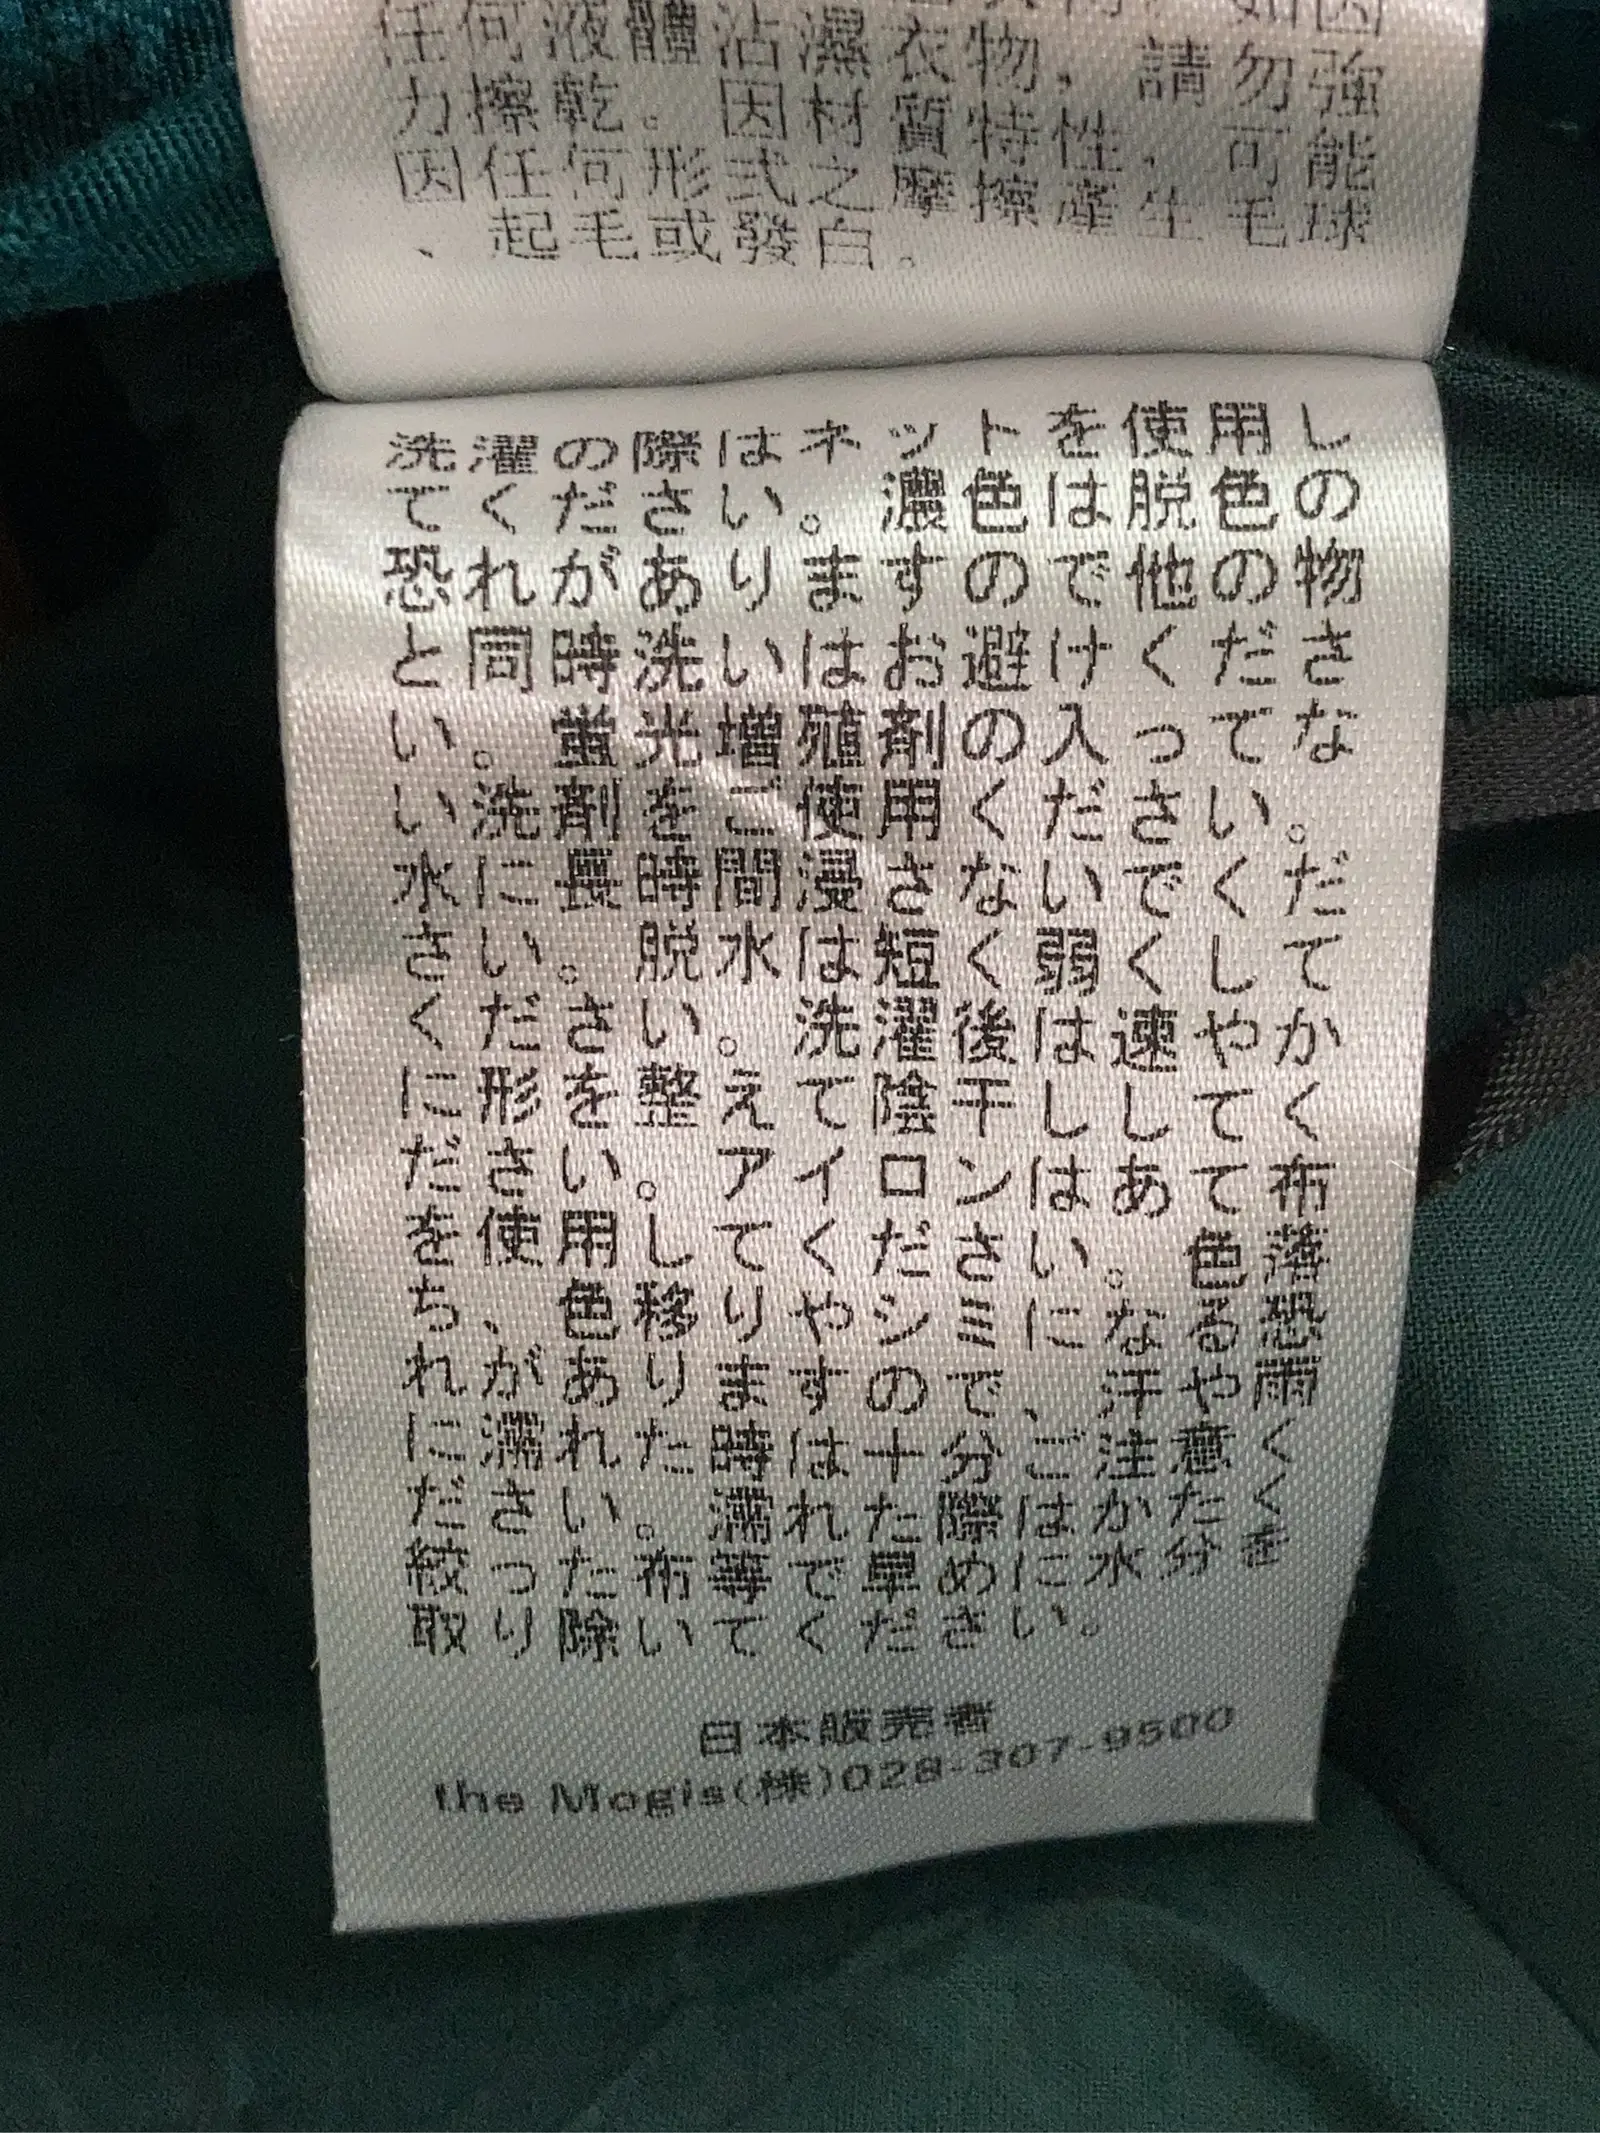 任何液體沾濕衣物，請勿強
力擦乾。因材質特性，可能
因任何形式之摩擦產生毛球
、起毛或發白。
洗濯の際はネットを使用し
てください。濃色は脱色の
恐れがありますので他の物
と同時洗いはお避けくださ
い。蛍光増殖剤の入ってな
い洗剤をご使用ください。
水に長時間浸さないでくだ
さい。脱水は短く弱くして
ください。洗濯後は速やか
に形を整えて陰干ししてく
ださい。アイロンはあて布
を使用してください。色落
ち、色移りやシミになる恐
れがありますので、汗や雨
に濡れた時は十分ご注意く
ださい。濡れた際はかたく
絞った布等で早めに水分を
取り除いてください。
日本販売者
the Mogis(株)028-307-9500